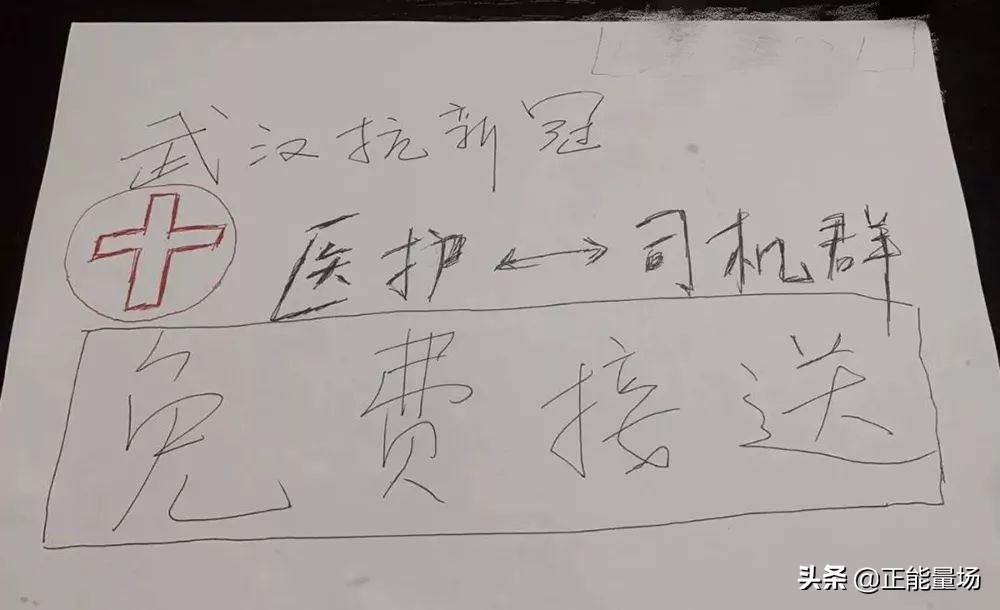 武汉抗新冠
医护 ←→ 司机群
免费接送
头条 @正能量场